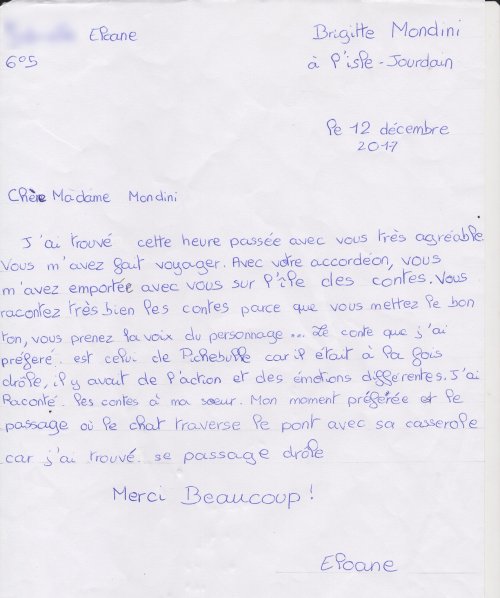 Eloane
Brigitte Mondini
6°5
à l'isle-Jourdain
le 12 décembre
2017
Chère Madame Mondini
J'ai trouvé cette heure passée avec vous très agréable.
Vous m'avez fait voyager. Avec votre accordéon, vous
m'avez emportée avec vous sur l'île des contes. Vous
racontez très bien les contes parce que vous mettez le bon
ton, vous prenez la voix du personnage... Le conte que j'ai
préféré est celui de car il était à la fois
drôle, il y avait de l'action et des émotions différentes. J'ai
Raconté les contes à ma soeur. Mon moment préférée est le
passage où le chat traverse le pont avec sa casserole
car j'ai trouvé se passage drôle
Merci Beaucoup !
Eloane